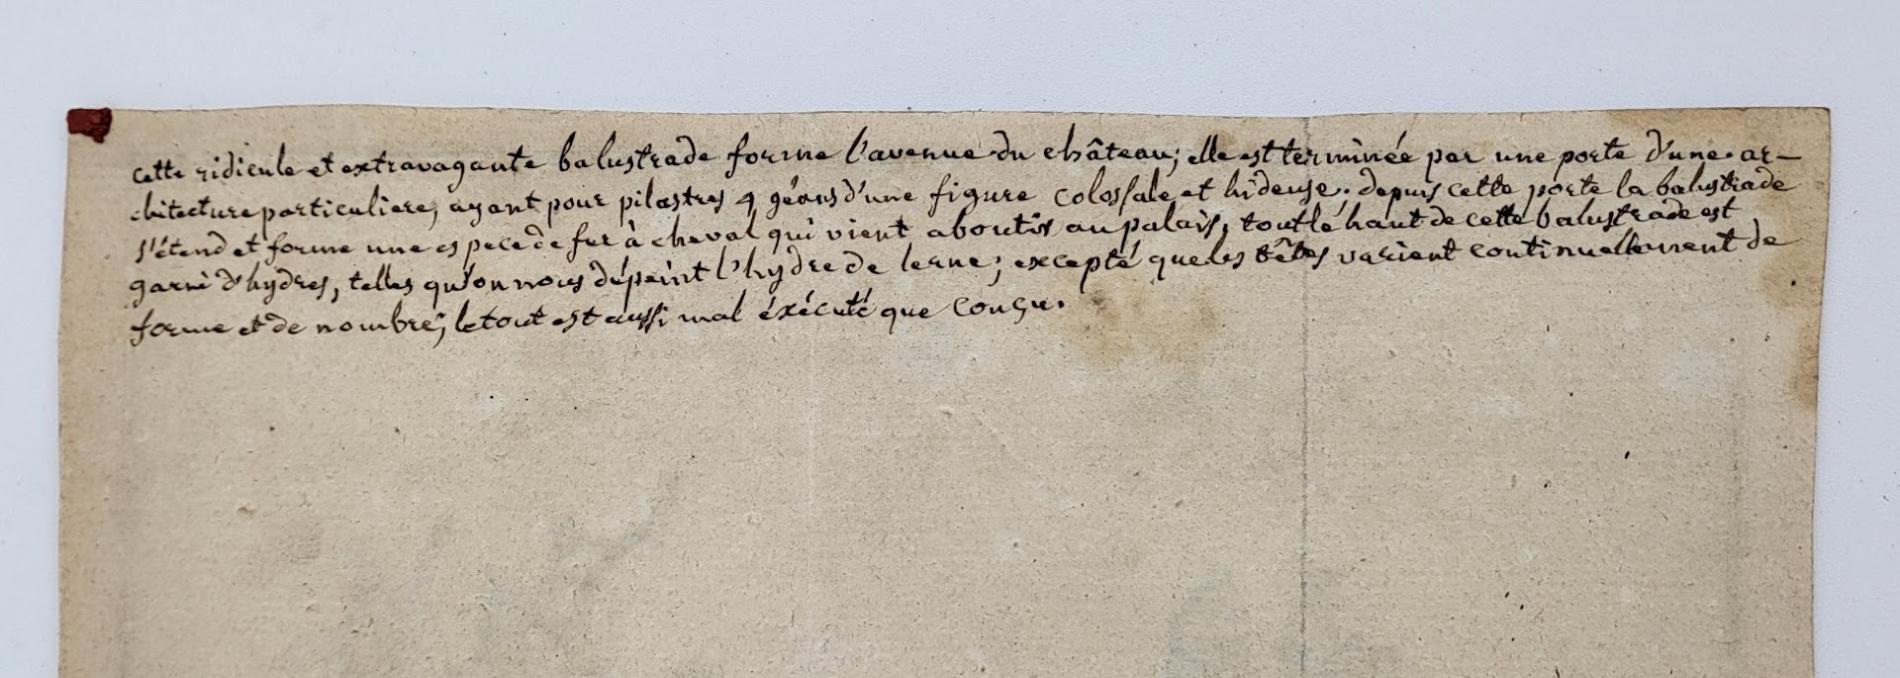 cette ridicule et extravagante balustrade forme l'avenue du château; elle est terminée par une porte d'une ar-
chitecture particuliere, ayant pour pilastres 4 géans d'une figure colossale et hideuse. depuis cette porte la balustrade
s'étend et forme une espece de fer à cheval qui vient aboutir au palais, tout le haut de cette balustrade est
garni d'hydres, telles qu'on nous dépeint l'hydre de lerne; excepté que les têtes varient continuellement de
forme et de nombre; le tout est aussi mal éxécuté que conçu.